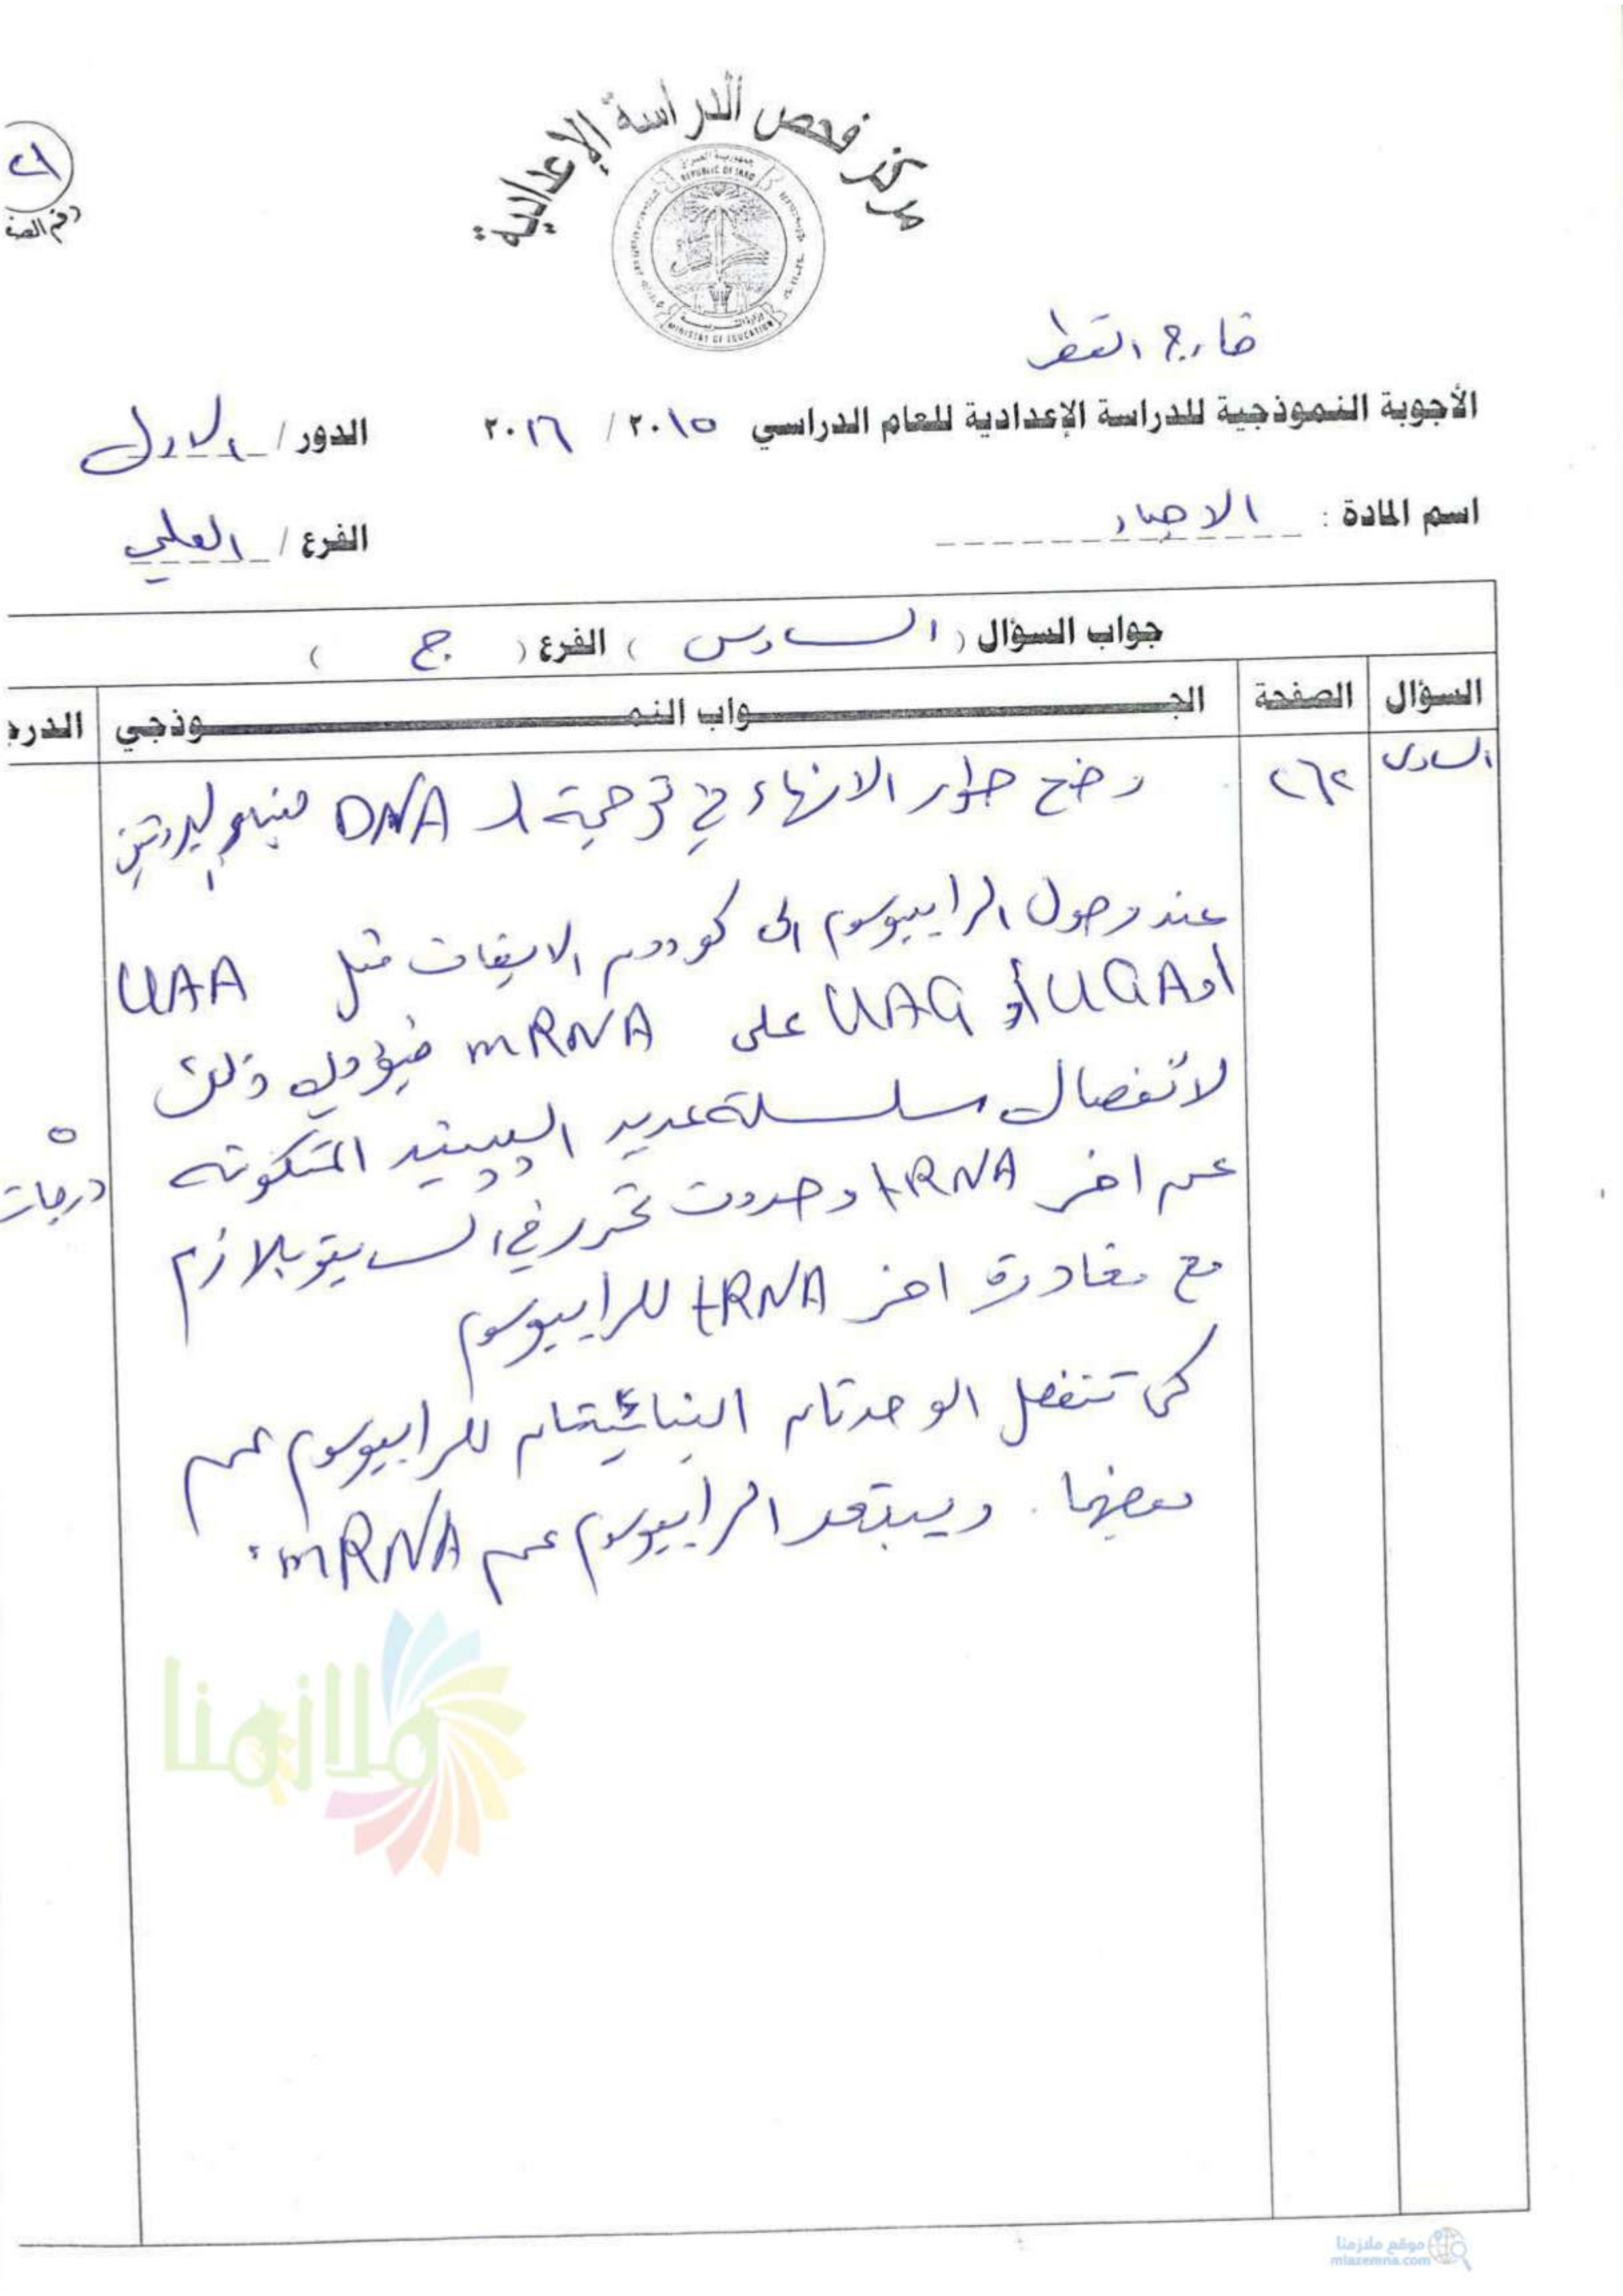 مركز فحص الدراسة الإعدادية
جمهورية العراق
REPUBLIC OF IRAQ
وزارة التربية
MINISTRY OF EDUCATION
٢١
رقم الصف
خارج القطر
الأجوبة النموذجية للدراسة الإعدادية للعام الدراسي ٢٠١٥ / ٢٠١٦ الدور / الاول
اسم المادة : الاحياء الفرع / العلمي
جواب السؤال ( السادس ) الفرع ( ج )
السؤال الصفحة الجـــواب النمـــوذجي الدرج
السادس ٢٦٢ وضح طور الانهاء في ترجمة الـ DNA البروتين
عند وصول الرايبوسوم الى كودون الايقاف مثل UAA
او UGA أو UAG على mRNA فيؤدي ذلك
لانفصال سلسلة عديد الببتيد المتكونه
عن اخر tRNA وحدوث تحرر في السايتوبلازم
٥ درجات
مع مغادرة اخر tRNA للرايبوسوم
كى تنفصل الوحدتان البنائيتان للرايبوسوم عن
بعضهما. ويبتعد الرايبوسوم عن mRNA.
ملازمنا
موقع ملازمنا
mlazemna.com